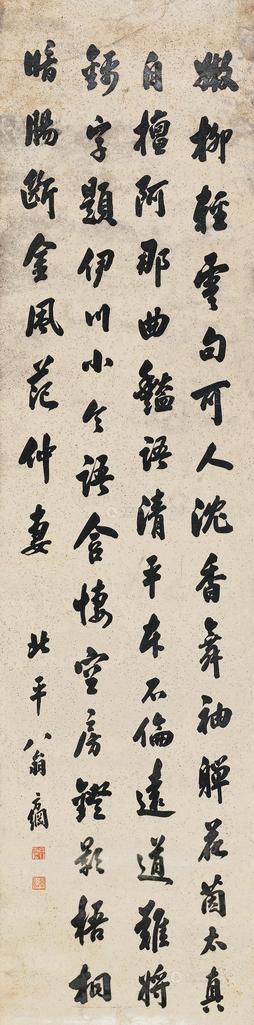 嫩柳輕雲句可人沈香舞袖嚲花茵太真
自擅阿那曲豔語清平本不倫遠道難將
錦字題伊川小令語含悽空房鐙影梧桐
暗腸斷金風范仲妻
北平八翁